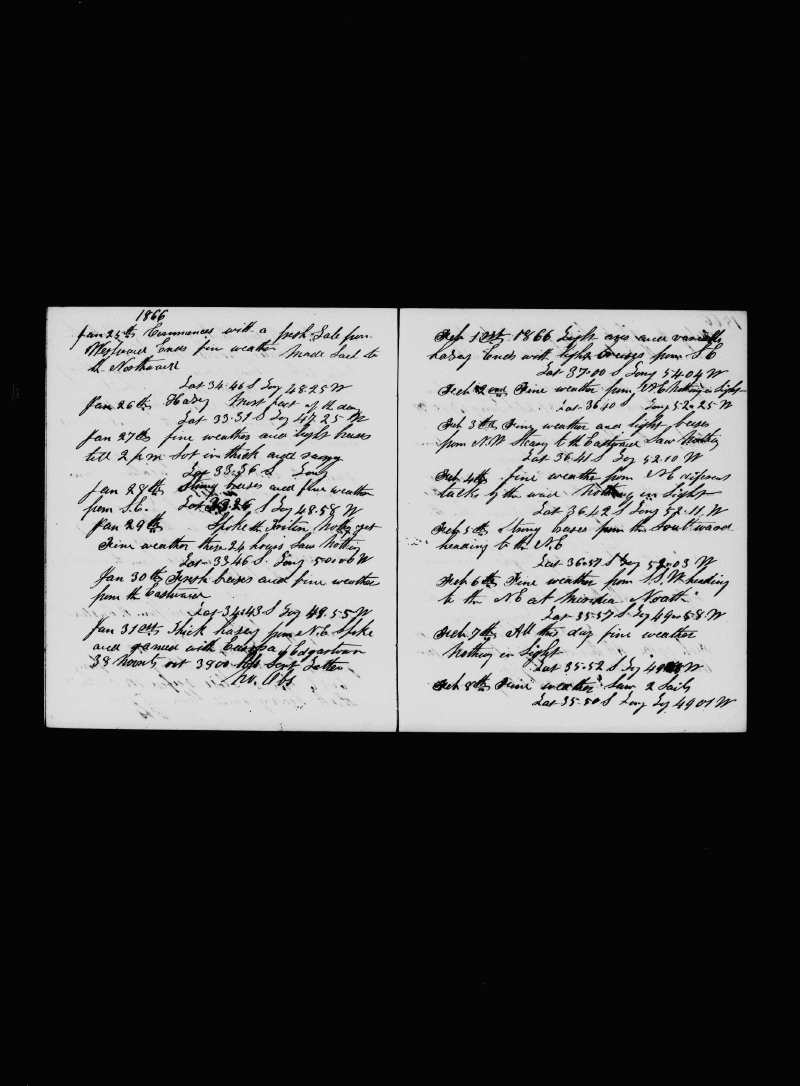 1866
Jan 25th Commences with a fresh Gale from
Westward Ends fine weather Made Sail to
the Northward
Lat 34.46 S Log 48.25 W
Jan 26th Hazy most part of the day
Lat 33.51 S Log 47.25 W
Jan 27th fine weather and light breses
till 2 pm Sot in thick and
Lat 33.36 S Long
Jan 28th Strong breses and fine weather
from S.E. Lat 33.26 S Log 48.58 W
Jan 29th Spoke the
Fine weather these 24 hours Saw Nothing
Lat 33.46 S Long 50.06 W
Jan 30th Fresh breses and fine weather
from the Eastward
Lat 34.43 S Log 48.55 W
Jan 31st Thick hazey from N.E. Spoke
and gamed with Europa of Edgartown
38 Months out 3900 bbls Sent Letter
No. Obs
Feb 1st 1866 Light airs and variable
hazey Ends with light breeses from S.E
Lat 37.00 S Long 54.04 W
Feb 2nd Fine weather from N.E Nothing in Sight
Lat 36.10 Long 52.25 W
Feb 3th Fine weather and light breses
from N.W Stearing to the Eastward Saw Nothing
Lat 36.41 S Log 52.10 W
Feb 4th fine weather from N.E different
tacks of the wind Nothing in Sight
Lat 36.42 S Long 52.11 W
Feb 5th Strong breses from the Southward
heading to the N.E
Lat 36.57 S Log 52.03 W
Feb 6th Fine weather from S.S.W heading
to the N.E at Noarth
Lat 35.57 S. Log 49.58 W
Feb 7th All this day fine weather
Nothing in Sight
Lat 35.52 S Log 49 W
Feb 8th Fine weather Saw 2 Sails
Lat 35.50 S Long Log 49 01 W